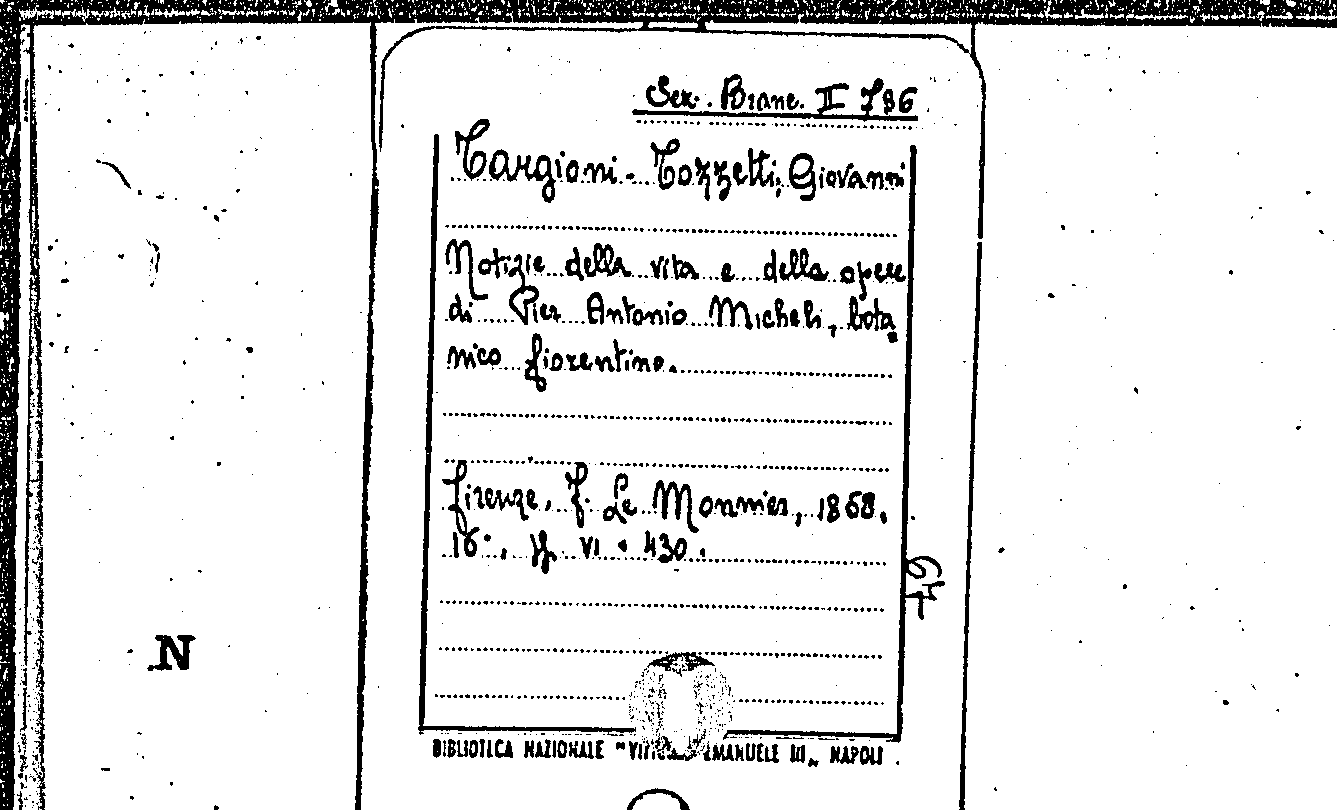 Sez. Branc. II 796
Targioni-Tozzetti, Giovanni
Notizie della vita e della opere
di Pier Antonio Micheli, bota
nico fiorentino.
Firenze, F. Le Monnier, 1868.
16°, pp. VI • 430.
N
BIBLIOTECA NAZIONALE "VITTORIO EMANUELE III„ NAPOLI